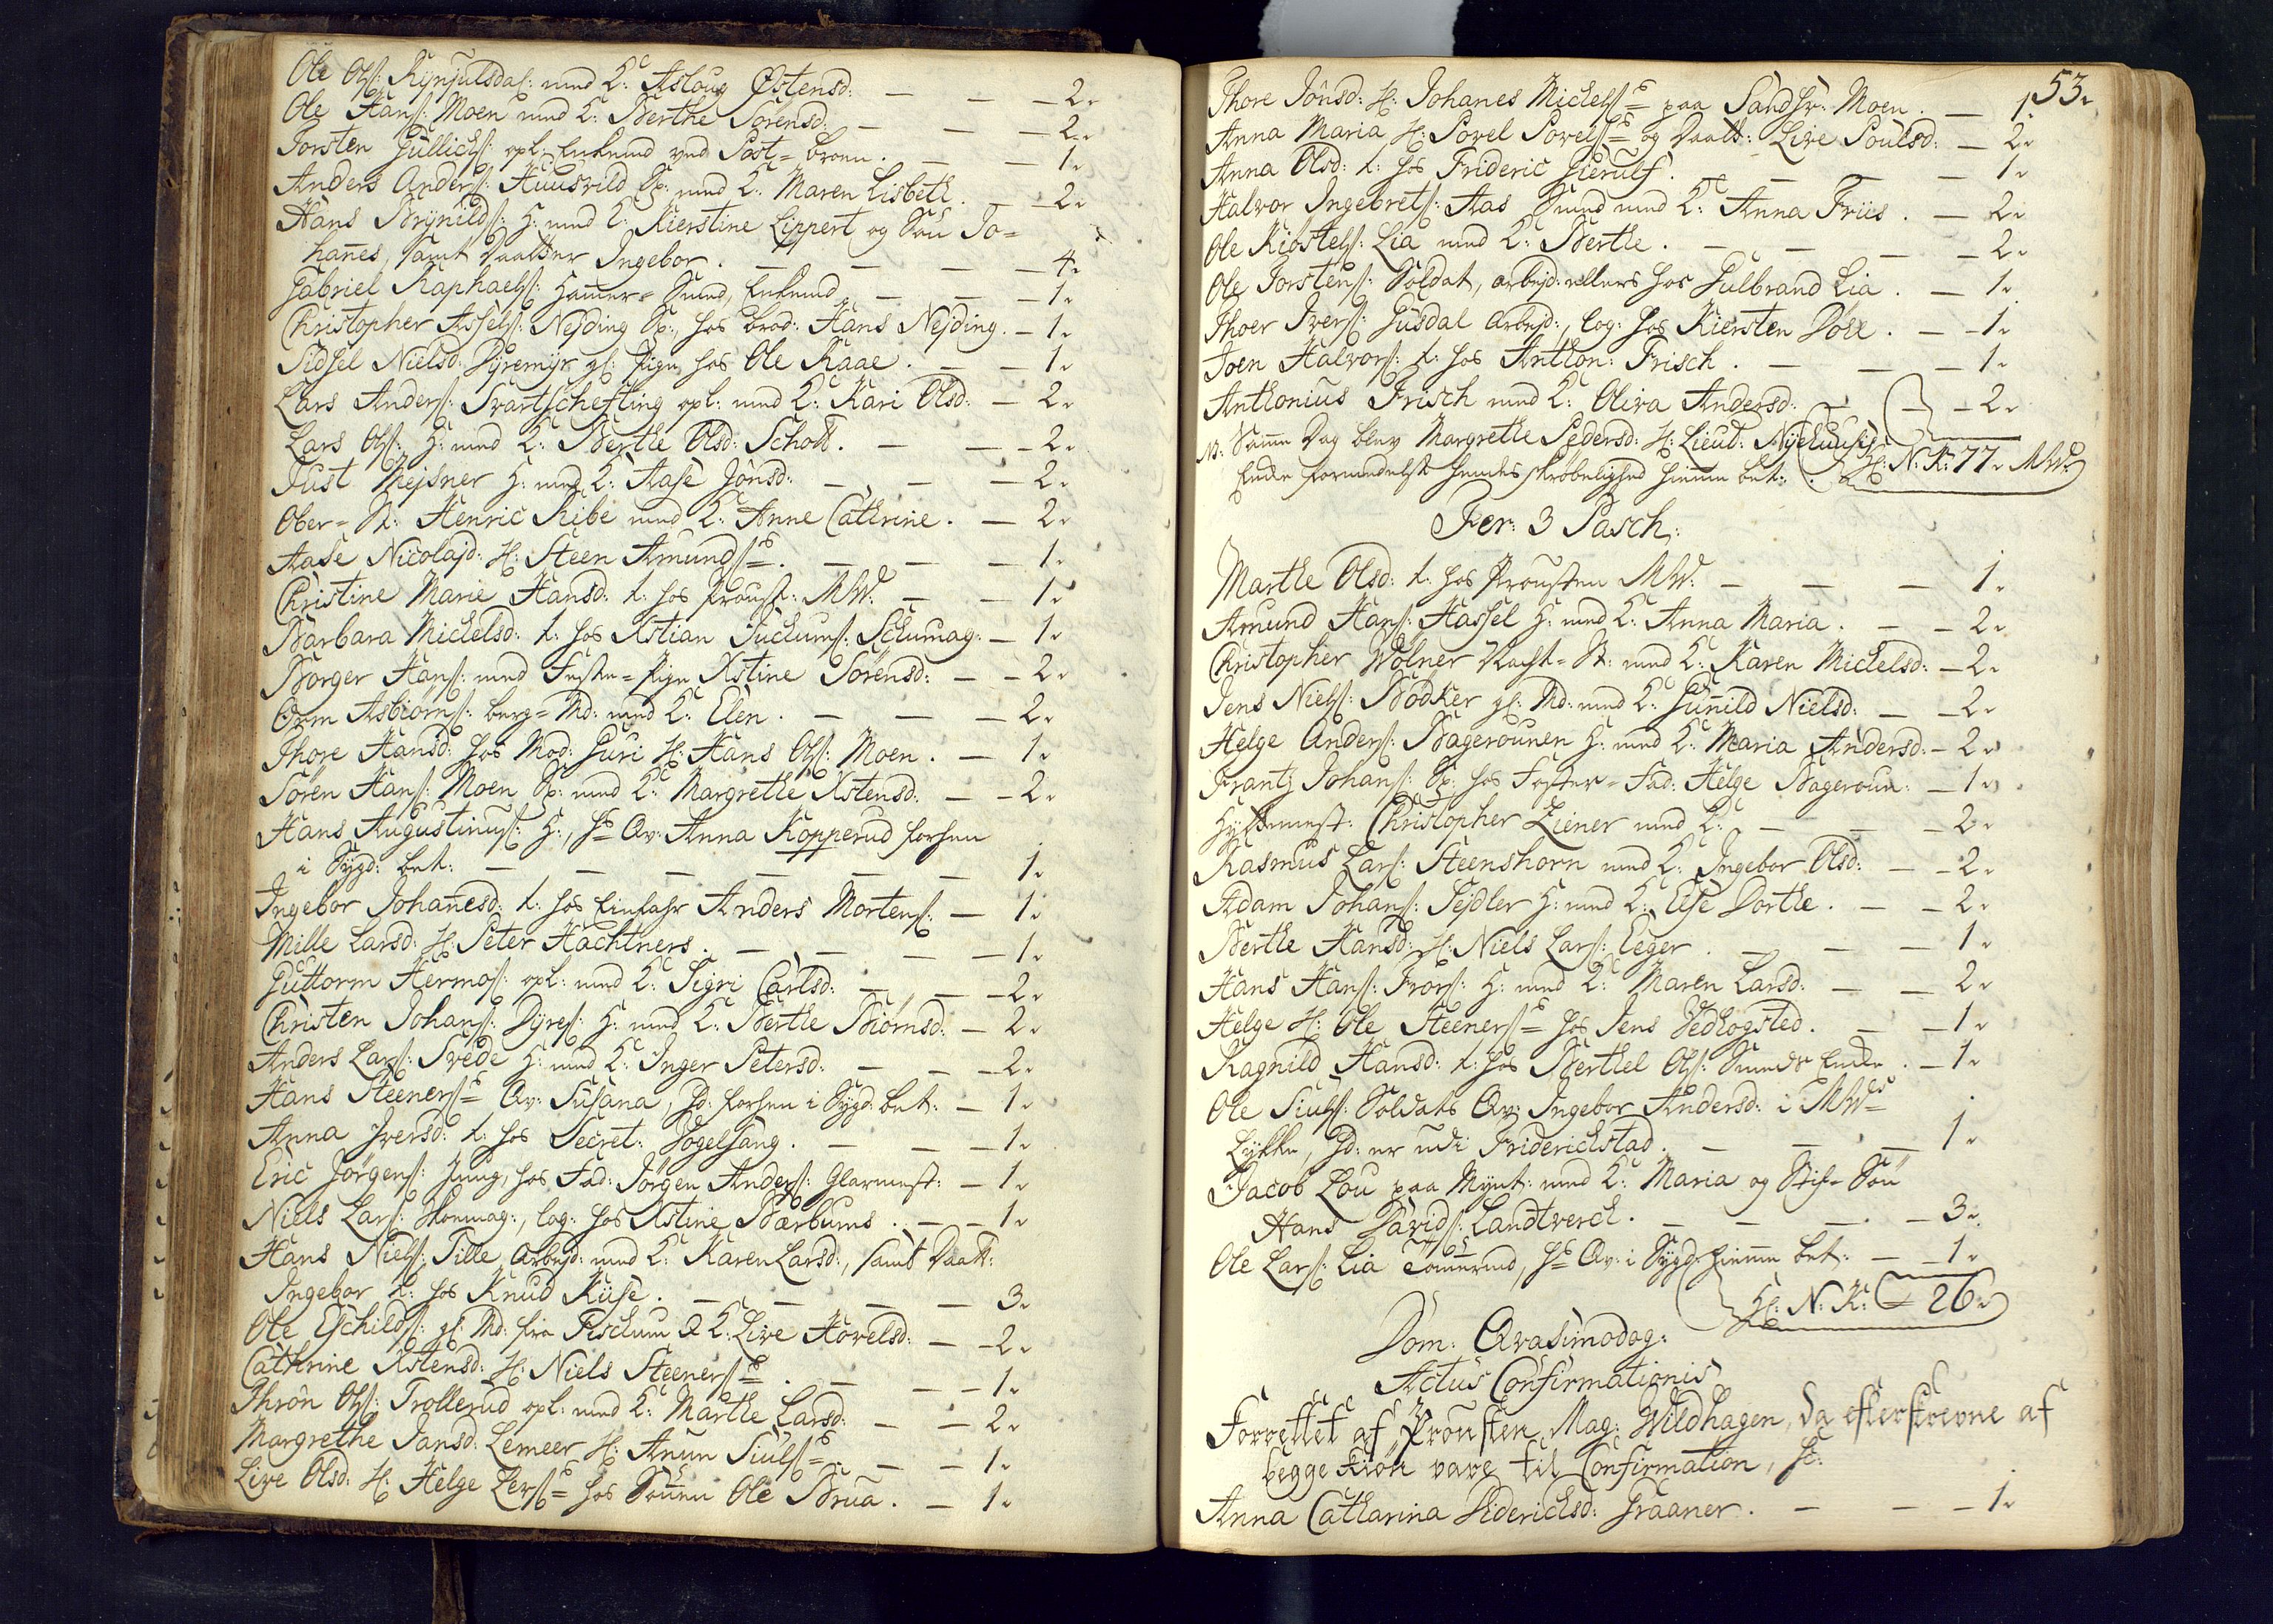 Ole Ols: Rynjulsdal: med K: Asloug Østensd: — — — 2.
Ole Hans: Moen med K: Berthe Sörensd: — — — 2.
Torsten Gullichs: opl: Enkemd ved Post-broen. — — 1.
Anders Anders: Huusvild Sp: med K: Maren Lisbeth. — 2.
Hans Brynilds: H: med K: Kierstine Lippert og Sön Jo-
hanes, samt Daatter Ingebor. — — — 4.
Gabriel Raphaels: Hamer-Smed, Enkemd — — 1.
Christopher Assels: Nejding Sp: hos brod: Hans Nejding. — 1.
Sidsel Nielsd: Dyremyr gl: Pige hos Ole Raae. — — 1.
Lars Anders: Svartschefting opl: med K: Kari Olsd: — 2.
Lars Ols: H: med K: Berthe Olsd: Schott. — — 2.
Just Mejsner H: med K: Aase Jönsd: — — — 2.
Ober-St: Henric Ribe med K: Anne Cathrine. — 2.
Aase Nicolajd: H: Steen Amunds= . — — — 1.
Christine Marie Hansd: t: hos Proust: MW: — — 1.
Barbara Michelsd: t: hos Xstian Juchums: Schumag: — 1.
Borger Hans: med Feste-Pige Xstine Sörensd: — — 2.
Orm Asbiörns: berg-Md: med K: Elen. — — — 2.
Thore Hansd: hos Mod: Guri H: Hans Ols: Moen. — 1.
Sören Hans: Moen Sp: med K: Margrethe Xstensd: — — 2.
Hans Augustinus: H:, hs Qv: Anna Kopperud forhen
i Sygd: bet: — — — — — — 1.
Ingebor Johanesd: t: hos Einfahr Anders Mortens: — 1.
Mille Larsd: H: Peter Hachtners. — — — — 1.
Guttorm Hermos: opl: med K: Sigri Carlsd: — — — 2.
Christen Johans: Dyres: H: med K: Berthe Biörnsd: — 2.
Anders Lars: Svede H: med K: Inger Petersd: — — — 2.
Hans Steeners= Qv: Susana, Hd: forhen i Sygd: bet: — 1.
Anna Iversd: t: hos Secret: Vogelsang. — — — 1.
Eric Jörgens: Jung, hos Fad: Jörgen Anders: Glarmest: — 1.
Niels Lars: Skomag:, log: hos Xstine Bærbums. — — 1.
Hans Niels: Tille Arbejd: med K: Karen Larsd:, samt Daat:
Ingebor t: hos Knud Kiise. — — — — 3.
Ole Eschilds: gl: Md: fra Fischum & K: Live Hovelsd: — 2.
Cathrine Xstensd: H: Niels Steeners= . — — — 1.
Thron Ols: Trollerud opl: med K: Marthe Larsd: — — 2.
Margrethe Jansd: Lemeer H: Anun Siuls= . — — 1.
Live Olsd: H: Helge Lers= hos Sönnen Ole Brua. — 1.
53.
Thore Jönsd: H: Johanes Michels= paa Sandsv: Moen. — 1.
Anna Maria H: Povel Povels= og Daatt: Live Poulsd: — 2.
Anna Olsd: t: hos Frideric Gierulf. — — — — 1.
Halvor Ingebrets: Aas Smed med K: Anna Friis. — 2.
Ole Kiostels: Lia med K: Berthe. — — — — 2.
Ole Torstens: Soldat, arbejd: ellers hos Gulbrand Lia. — 1.
Thoer Ivers: Gusdal arbejd:, log: hos Kiersten Döll. — — 1.
Joen Halvors: t: hos Anthon: Frisch. — — — 1.
Anthonius Frisch med K: Oliva Andersd: — — — 2.
NB: Same Dag blev Margrethe Pedersd: H: Lieut: Nyehuuses
Enke formedelst hendes skröbelighed hieme bet: . H: N: K: 77. MW:
Fer: 3 Pasch:
Marthe Olsd: t: hos Prousten MW: — — — 1.
Amund Hans: Hassel H: med K: Anna Maria. — — 2.
Christopher Wölner Vacht-St: med K: Karen Michelsd: — 2.
Jens Niels: Bödker gl: Md: med K: Gunild Nielsd: — — 2.
Helge Anders: Bagerounen H: med K: Maria Andersd: — 2.
Frantz Johans: Sp: hos Foster-Fad: Helge Bageroun: — 1.
Hyttemest: Christopher Ziener med K: — — — 2.
Rasmus Lars: Steenshorn med K: Ingebor Olsd: — — 2.
Adam Johans: Sejdler H: med K: Else Dorthe. — — 2.
Berthe Hansd: H: Niels Lars: Eeger. — — — 1.
Hans Hans: Frors: H: med K: Maren Larsd: — — 2.
Helge H: Ole Steeners= hos Jens Vedhogsted. — — 1.
Ragnild Hansd: t: hos Berthel Ols: Smeds Enke. — 1.
Ole Siuls: Soldats Qv: Ingebor Andersd: i MWs=
Lykke, Hd: er udi Friderichstad. — — — 1.
Jacob Lou paa Mynt: med K: Maria og Stif-Sön
Hans Davids: Landtverck. — — — — 3.
Ole Lars: Lia Tömermd, hs Qv: i Sygd: hieme bet: — — 1.
H: N: K: = 26.
Dom: Qvasimodog:
Actus Confirmationis
Forrettet af Prousten Mag: Wildhagen, da efterskrevne af
begge Kiön vare til Confirmation, sc:
Anna Catharina Diderichsd: Graaner. — — — 1.